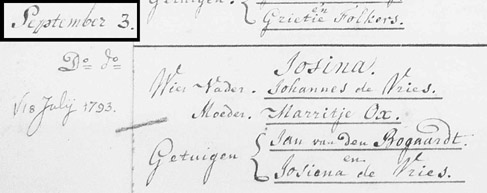 Getuigen
en
Grietie Folkers.
September 3.
Do do
18 July 1793.
Josina.
Wier Vader. Johannes de Vries.
Moeder. Marritje Ox.
Getuigen
Jan van den Bogaardt.
en
Josiena de Vries.